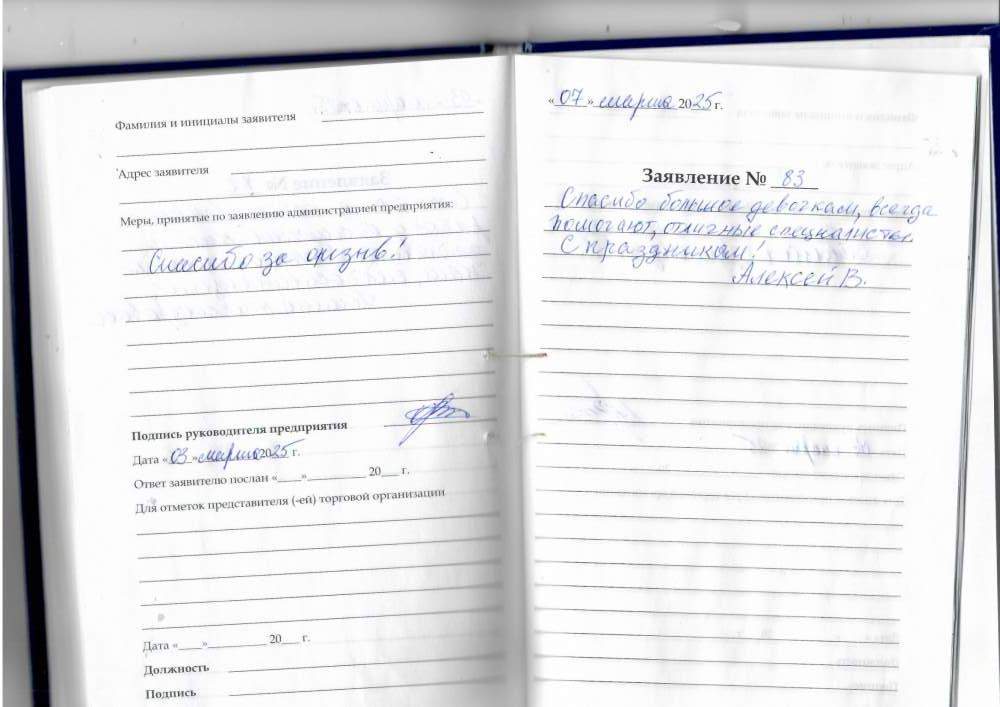 Фамилия и инициалы заявителя
Адрес заявителя
Меры, принятые по заявлению администрацией предприятия:
Спасибо за отзыв!
Подпись руководителя предприятия
Дата «03» марта 2025 г.
Ответ заявителю послан «____»__________ 20___ г.
Для отметок представителя (-ей) торговой организации
Дата «____»__________ 20___ г.
Должность
Подпись
«07» марта 2025 г.
Заявление № 83
Спасибо большое девочкам, всегда
помогают, отличные специалисты.
С праздником!
Алексей В.